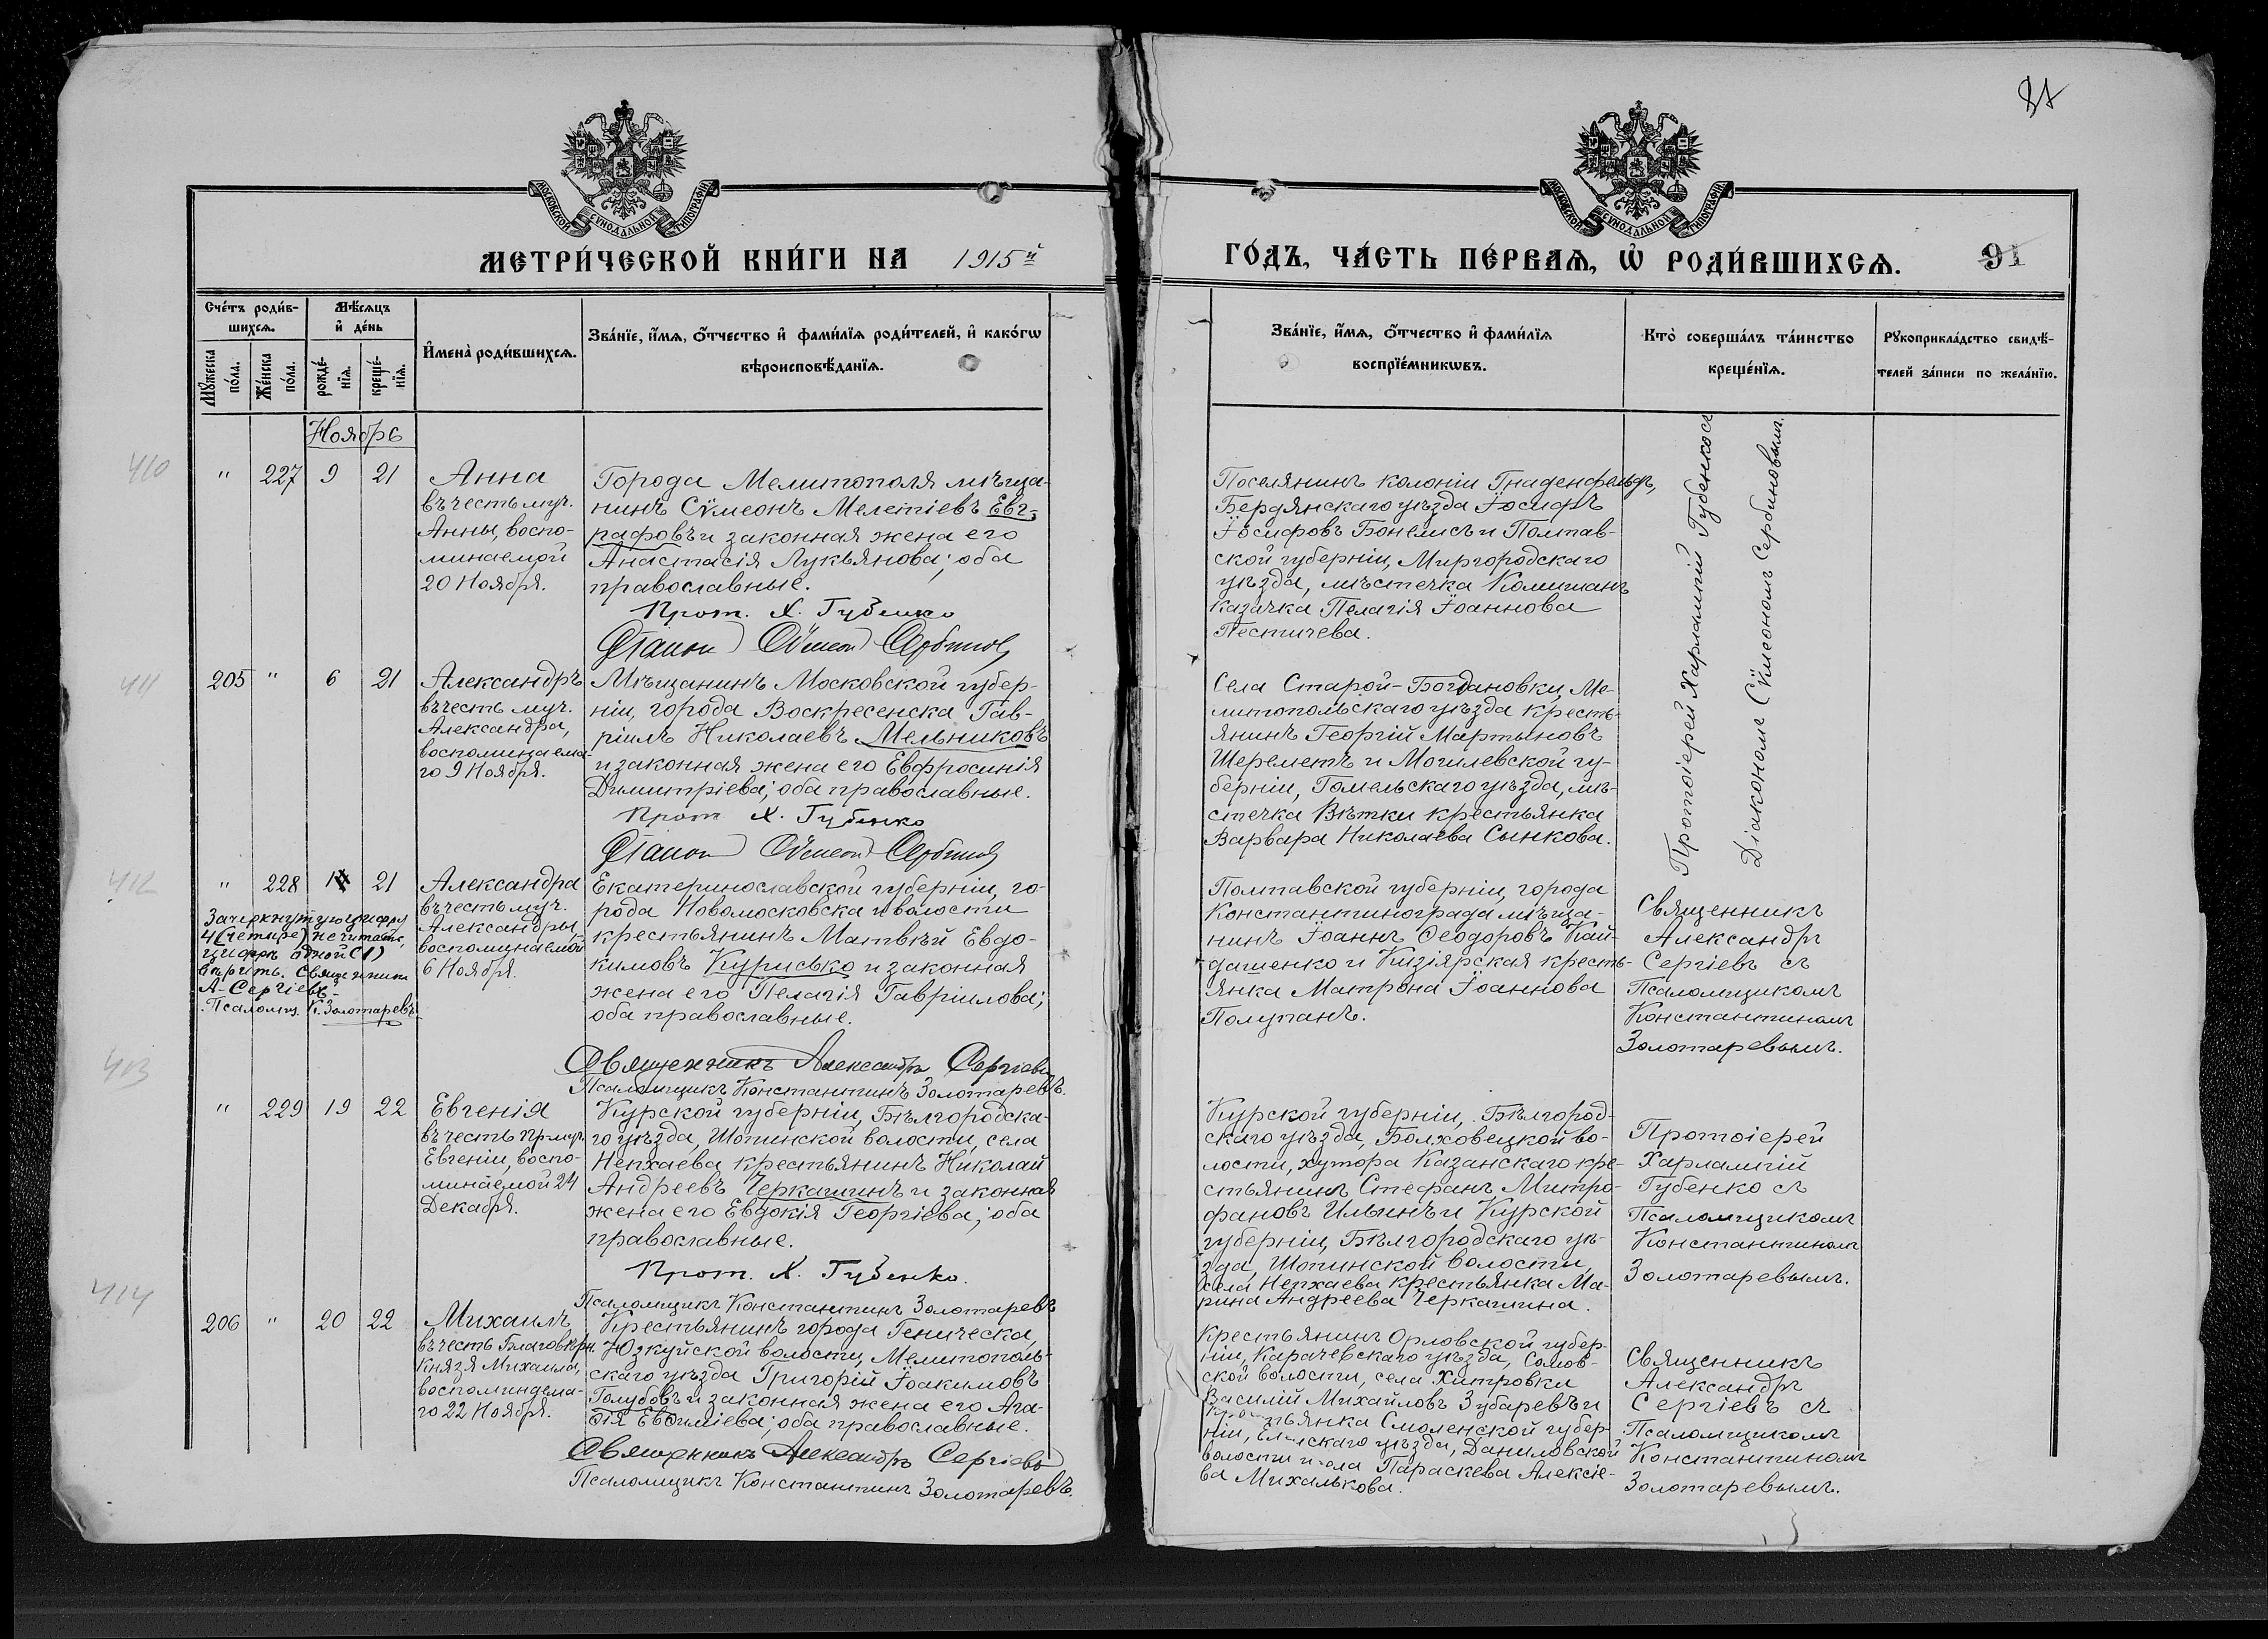 81
МОСКОВСКОЙ СУНОДАЛЬНОЙ ТИПОГРАФІИ
МОСКОВСКОЙ СУНОДАЛЬНОЙ ТИПОГРАФІИ
МЕТРИ́ЧЕСКОЙ КНИ́ГИ НА 1915й
ГО́ДЪ, ЧА́СТЬ ПЕ́РВАЯ, Ѡ҆ РОДИ́ВШИХСЯ. 91
Сче́тъ роди́в-
шихся.
Мѣ́сяцъ
и҆ де́нь
Мꙋ́жеска
по́ла.
Же́нска
по́ла.
рожде́-
нїя.
креще́-
нїя.
И҆мена̀ роди́вшихся.
Зва́нїе, и҆́мя, ѻ҆́тчество и҆ фами́лїя роди́телей, и҆ како́гѡ
вѣроисповѣ́данїя.
Зва́нїе, и҆́мя, ѻ҆́тчество и҆ фами́лїя
воспрїе́мникѡвъ.
Кто̀ соверша́лъ та́инство
креще́нїя.
Рꙋкоприкла́дство свидѣ́-
телей за́писи по жела́нїю.
Ноябрь
410
" 227 9 21
Анна
въ честь муч.
Анны, воспо-
минаемой
20 Ноября.
Города Мелитополя мѣща-
нинъ Сѵмеонъ Мелетіевъ Евг-
рафовъ и законная жена его
Анастасія Лукьянова; оба
православные.
Прот. Х. Губенко
Діаконъ Сѵмеонъ Сербиновъ
Поселянинъ колоніи Гнаденфельдъ,
Бердянскаго уѣзда Іосифъ
Іосифовъ Бонелисъ и Полтав-
ской губерніи, Миргородскаго
уѣзда, мѣстечка
казачка Пелагія Іоаннова
Пестичева.
Протоіерей Харлампій Губенко съ
Діакономъ Сѵмеономъ Сербиновымъ.
411
205 " 6 21
Александръ
въ честь муч.
Александра,
воспоминаема-
го 9 Ноября.
Мѣщанинъ Московской губер-
ніи, города Воскресенска Гав-
ріилъ Николаевъ Мельниковъ
и законная жена его Евфросинія
Димитріева; оба православные.
Прот Х. Губенко
Діаконъ Сѵмеонъ Сербиновъ
Села Старой-Богдановки, Ме-
литопольскаго уѣзда кресть-
янинъ Георгій Мартыновъ
Шереметъ и Могилевской гу-
берніи, Гомельскаго уѣзда, мѣ-
стечка Вѣтки крестьянка
Варвара Николаева Сынкова.
412
" 228 14 21
Зачеркнутую цифру
4 (четыре) не читать,
цифрѣ одной (1)
вѣрить. Священникъ
А. Сергіевъ
Псаломщ. К. Золотаревъ
Александра
въ честь муч.
Александры,
воспоминаемой
6 Ноября.
Екатеринославской губерніи, го-
рода Новомосковска и волости
крестьянинъ Матвѣй Евдо-
кимовъ Курисько и законная
жена его Пелагія Гавріилова;
оба православные.
Священникъ Александръ Сергіевъ
Псаломщикъ Константинъ Золотаревъ.
Полтавской губерніи, города
Константинограда мѣща-
нинъ Іоаннъ Ѳеодоровъ Кай-
дашенко и Кизіярская кресть-
янка Матрона Іоаннова
Полупанъ.
Священникъ
Александръ
Сергіевъ съ
Псаломщикомъ
Константиномъ
Золотаревымъ.
413
" 229 19 22
Евгенія
въ честь прмуч.
Евгеніи, воспо-
минаемой 24
Декабря.
Курской губерніи, Бѣлгородска-
го уѣзда, Шопинской волости, села
Непхаева крестьянинъ Николай
Андреевъ Черкашинъ и законная
жена его Евдокія Георгіева; оба
православные.
Прот. Х. Губенко.
Псаломщикъ Константинъ Золотаревъ
Курской губерніи, Бѣлгород-
скаго уѣзда, Болховецкой во-
лости, хутора Казанскаго кре-
стьянинъ Стефанъ Митро-
фановъ Ильинъ и Курской
губерніи, Бѣлгородскаго уѣ-
зда, Шопинской волости,
села Непхаева крестьянка Ма-
рина Андреева Черкашина.
Протоіерей
Харлампій
Губенко съ
Псаломщикомъ
Константиномъ
Золотаревымъ.
414
206 " 20 22
Михаилъ
въ честь Благовѣрн.
Князя Михаила,
воспоминаема-
го 22 Ноября.
Крестьянинъ города Геническа,
Юзкуйской волости, Мелитополь-
скаго уѣзда Григорій Іоакимовъ
Голубовъ и законная жена его Ага-
ѳія Евѳиміева; оба православные.
Священникъ Александръ Сергіевъ
Псаломщикъ Константинъ Золотаревъ.
Крестьянинъ Орловской губер-
ніи, Карачевскаго уѣзда, Сомов-
ской волости, села Хитровки
Василій Михайловъ Зубаревъ и
крестьянка Смоленской губер-
ніи, Ельнскаго уѣзда, Даниловской
волости и села Параскева Алексіе-
ва Михалькова.
Священникъ
Александръ
Сергіевъ съ
Псаломщикомъ
Константиномъ
Золотаревымъ.